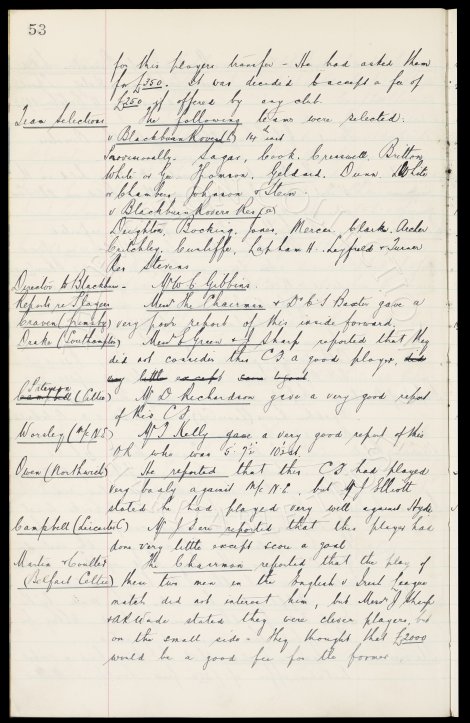 53
for this players transfer - He had asked them
for £350. It was decided to accept a fee of
£250 if offered by any club.
Team Selections The following teams were selected:-
v Blackburn Rovers (L) 14th inst
Provisionally. Sagar, Cook. Cresswell. Britton,
White or Gee Thomson, Geldard. Dunn. White
or Chambers, Johnson & Stein.
v Blackburn Rovers Res (a)
Deighton, Bocking, Jones, Mercer, Clark, Archer
Critchley. Cunliffe, Lapham H. Leyfield & Turner
Res Stevens
Director to Blackburn - Mr W C Gibbins.
Reports re Players Messrs The Chairman & Dr C S Baxter gave a
Craven (Grimsby) very poor report of this inside forward.
Drake (Southampton) Messrs E Green & J Sharp reported that they
did not consider this C F a good player, did
very little except score a goal
Stevenson
Campbell (Celtic) Mr D Richardson gave a very good report
of this C F.
Worsley (M/c N.E) Mr T Kelly gave a very good report of this
OR who was 5' 7½ 10 st.
Owen (Northwich) He reported that this C F had played
very badly against M/c N.E, but Mr J Elliott
stated he had played very well against Hyde
Campbell (Leicester C) Mr J reported that this player had
done very little except score a goal
Martin & Coulter The Chairman reported that the play of
(Belfast Celtic) these two men in the English v Irish League
match did not interest him, but Messrs J Sharp
& A Wade stated they were clever players, but
on the small side - They thought that £2000
would be a good fee for the former